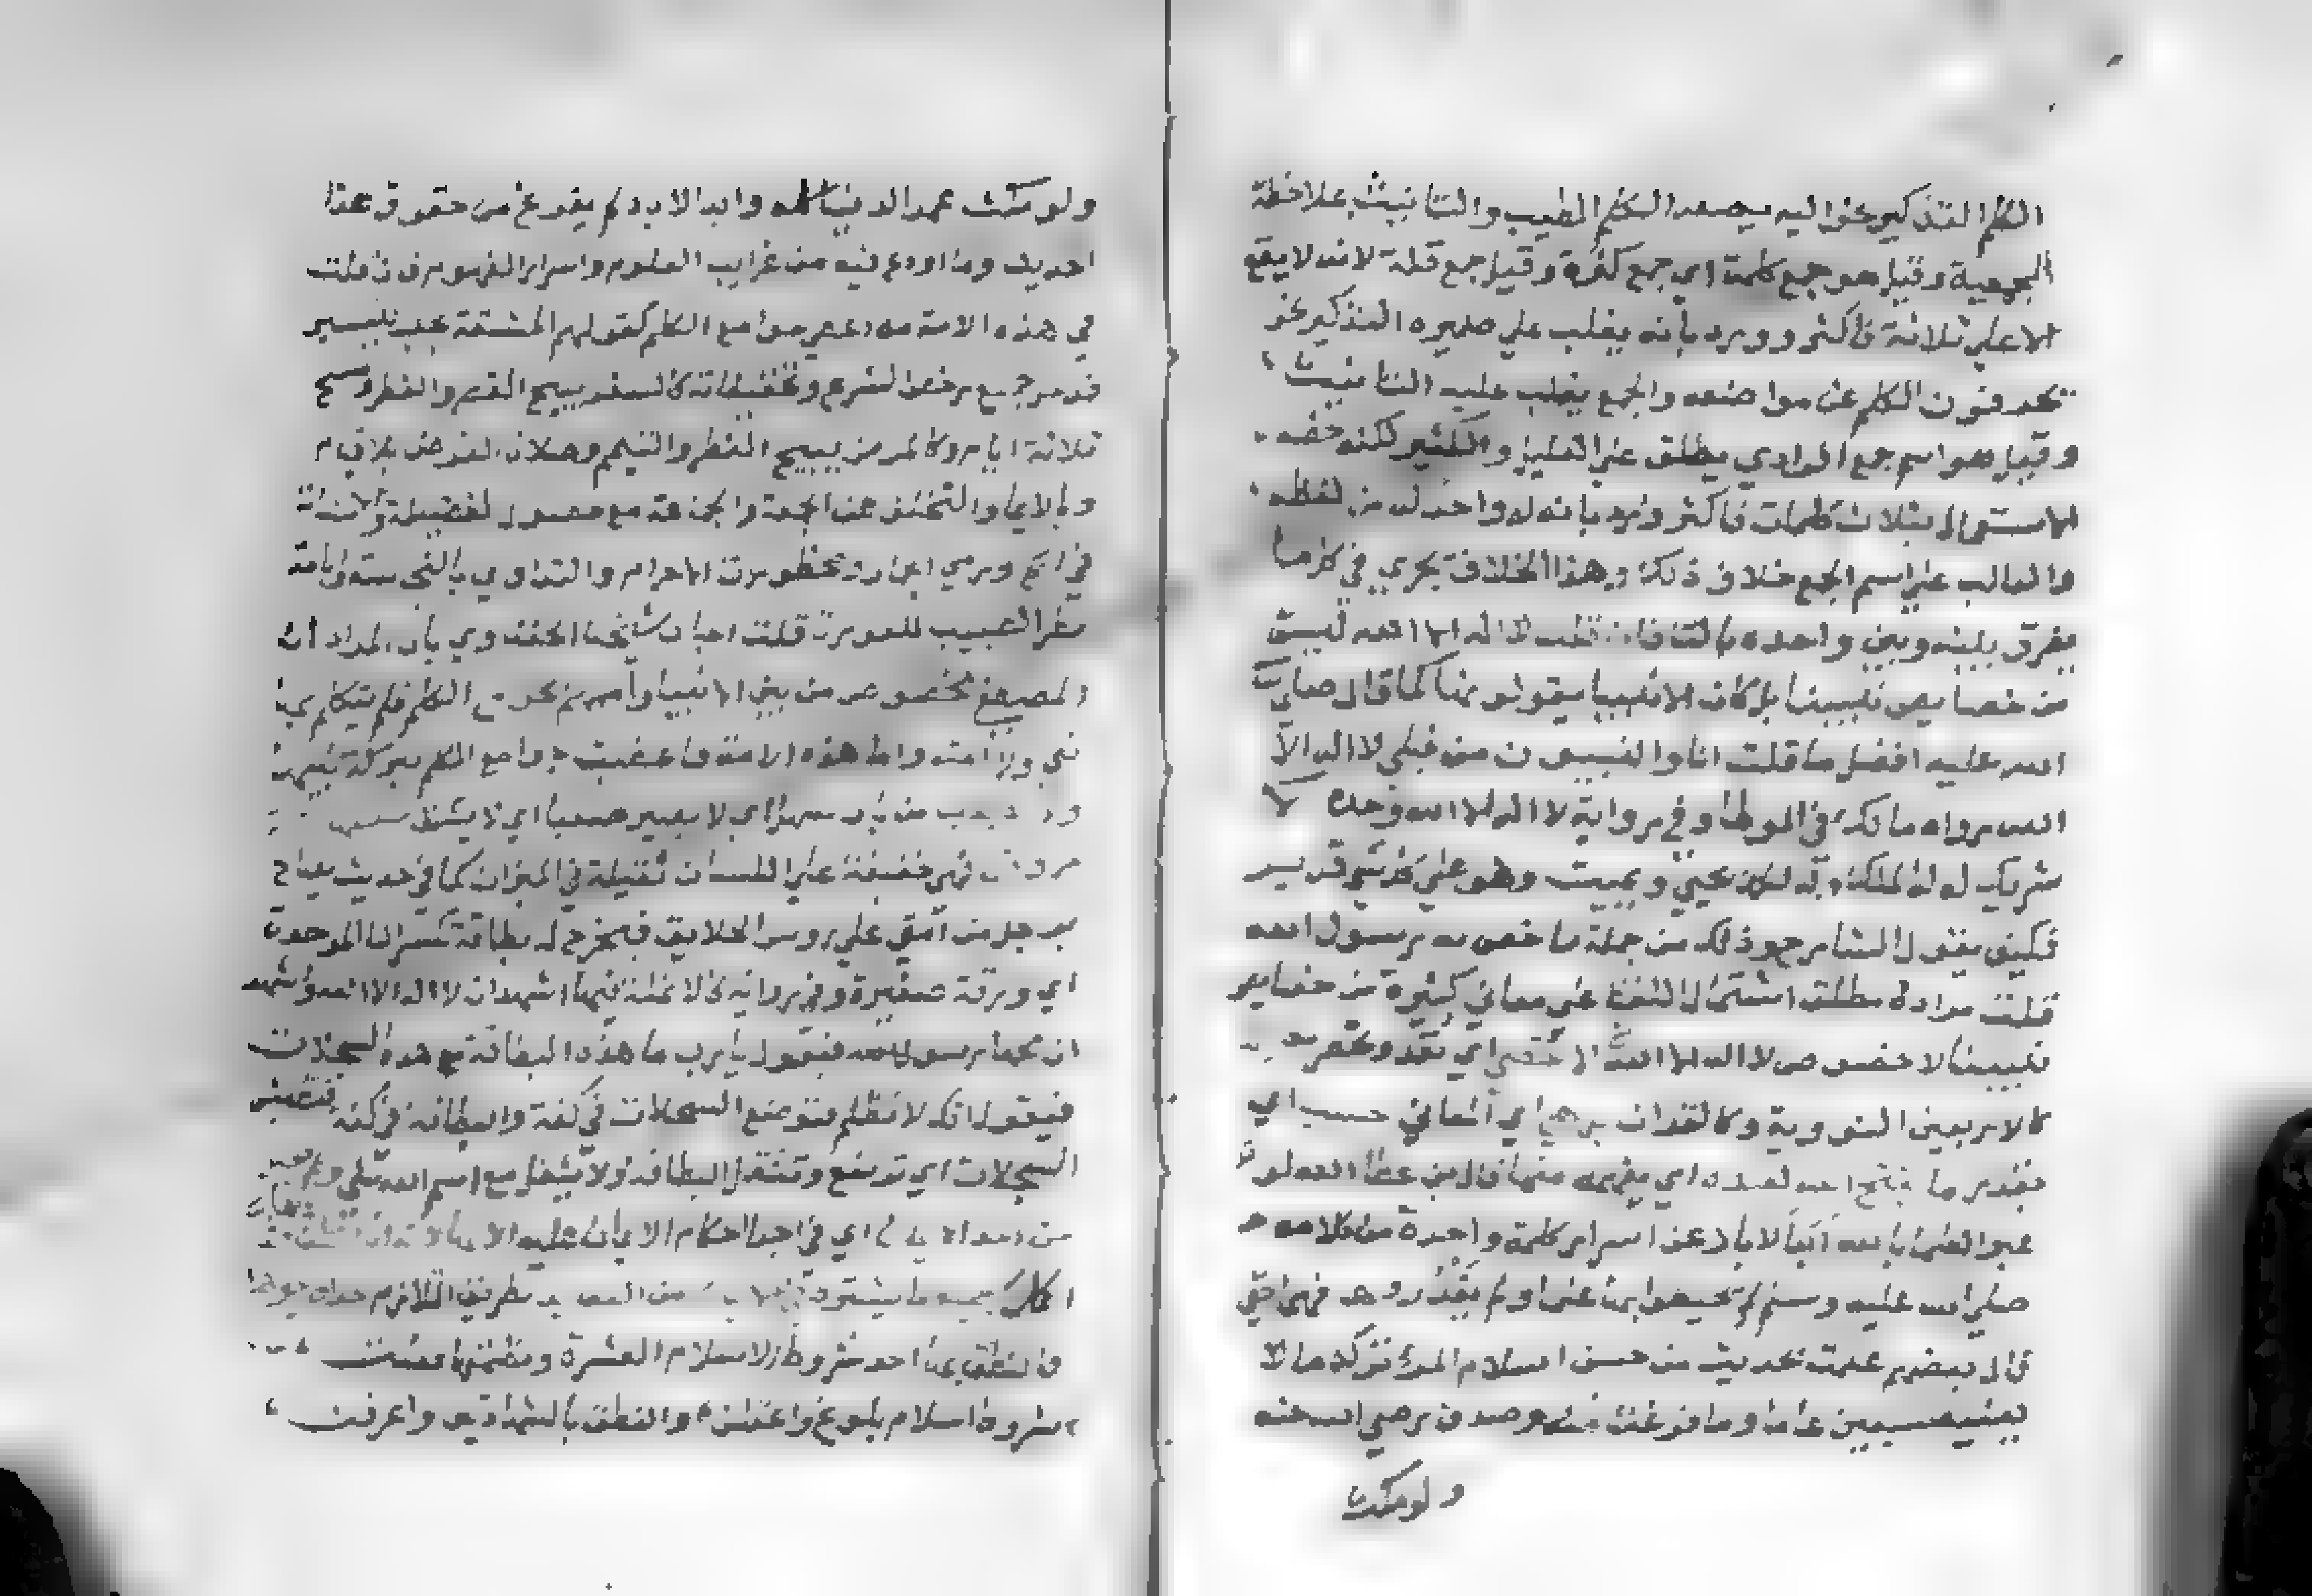 الكلم التذكير نحو اليه يصعد الكلم الطيب والتانيث بملاحظة
الجمعية وقيل هو جمع كلمة اي جمع كثرة وقيل جمع قلة لانه لا يقع
الا علي ثلاثة فاكثر وورد بأنه يغلب علي ضميره التذكير نحو
يحرفون الكلم عن مواضعه والجمع يغلب عليه التانيث
وقيل هو اسم جمع افرادي يطلق علي القليل والكثير لكنه خصه
الاستعمال بثلاث كلمات فاكثر ورد بانه له واحد له من لفظه
والغالب علي اسم الجمع خلاف ذلك وهذا الخلاف يجري في كل ما
يفرق بينه وبين واحده بالتا فان قلت لا اله الا الله ليست
من خصايص نبيينا بل كان الانبيا يقولونها كما قال صلي
الله عليه افضل ما قلت انا والنبيون من قبلي لا اله الا
الله رواه مالك في الموطا وفي رواية لا اله الا الله وحده لا
شريك له له الملك وله الحمد يحيي ويميت وهو علي كل شي قدير
فكيف يقول الشارح وذلك من جملة ما خص به رسول الله
قلت مراده مطلق اشتمال اللفظ علي معاني كثيرة من خصايص
نبيينا لا خصوص لا اله الا الله لا تحصي اي تعد وتحصر
كالاربعين النووية وكالقران اي المعاني حسب اي
بقدر ما يفتح الله لعبده اي يلهمه منها قال ابن عطا الله لو
عبر العلما بالله ابد الاباد عن اسرار كلمة واحدة من كلامه
صلي الله عليه وسلم لم يحيطوا بها علما ولم يقدروها فهما حتي
قال بعضهم عملت بحديث من حسن اسلام المرء تركه ما لا
يعنيه سبعين عاما وما فرغت منه وصدق رضي الله عنه
ولو مكث
ولو مكث عمر الدنيا كله وابد الاباد لم يفرغ من حقوق هذا
الحديث وما اودع فيه من غرايب العلوم واسرار الفهوم فان قلت
في هذه الامة من اعطي جوامع الكلم كقولهم المشقة تجلب التيسير
جميع رخص الشرع وتخفيفاته كالسفر يبيح القصر والفطر ومسح
ثلاثة ايام وكالمرض يبيح الفطر والتيمم وصلاة الفرض بلا قيام
وبالايما والتخلف عن الجمعة والجماعة مع حصول الفضيلة والاستنابة
في الحج ورمي الجمار ومحظورات الاحرام والتداوي بالنجاسة واباحة
نظر الطبيب للعورة قلت اجاب شيخنا الحفناوي بأن المراد ان
المصطفي مخصوص من بين الانبيا واممهم بجوامع الكلم فلم يتكلم بها
نبي ولا امته واما هذه الامة فاعطيت جوامع الكلم ببركة نبيها
من باب سهل اي لا يصير صعبا اي لا يشق
فهي خفيفة علي اللسان ثقيلة في الميزان كما في حديث يصاح
برجل من امتي علي روس الخلايق فيخرج له بطاقة بكسر البا الموحدة
اي ورقة صغيرة وفي رواية كالانملة فيها اشهد ان لا اله الا الله واشهد
ان محمدا رسول الله فيقول يا رب ما هذه البطاقة مع هذه السجلات
فيقول انك لا تظلم فتوضع السجلات في كفة والبطاقة في كفة فتطيش
السجلات اي ترتفع وتثقل البطاقة ولا يثقل مع اسم الله شي
اي في اجرا احكام الايمان عليه
ما يشترط
فالنطق بها احد شروط الاسلام العشرة ونظمتها فقلت
شروط اسلام بلوغ واعقلن والنطق بالشهادتين واعرفن